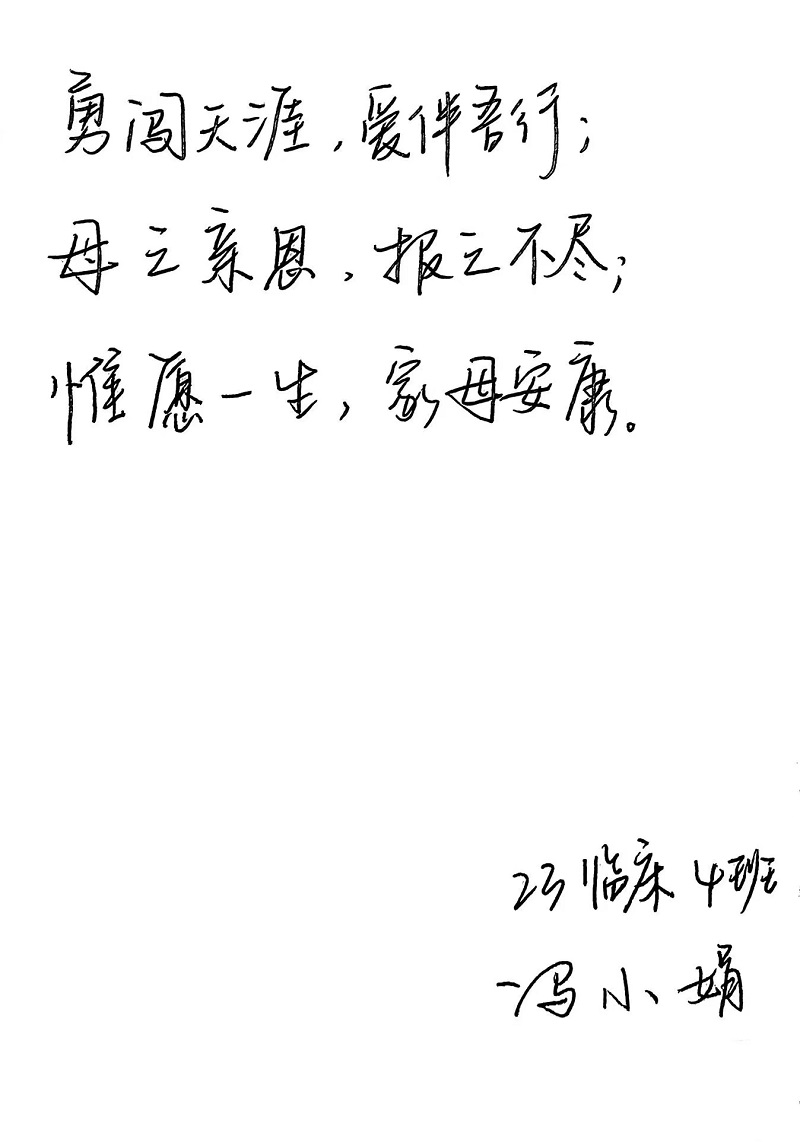 勇闯天涯，爱伴吾行；
母之亲恩，报之不尽；
惟愿一生，家母安康。
23临床4班
冯小娟